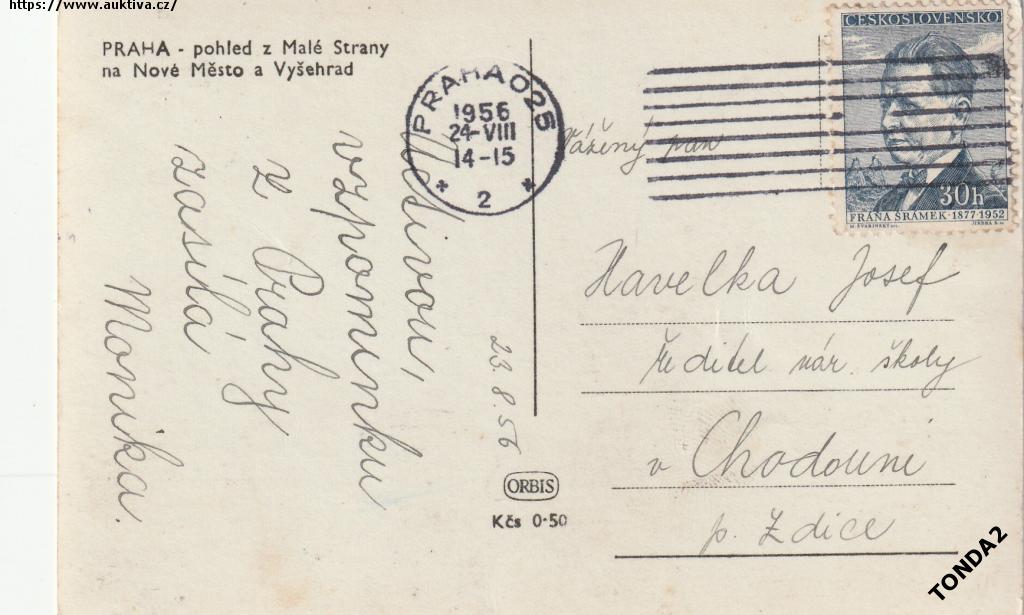 https://www.auktiva.cz/
PRAHA - pohled z Malé Strany
na Nové Město a Vyšehrad
Milivou,
vzpomínku
z Prahy
zasílá
Monika.
23.8.56
PRAHA 025
1956
24-VIII
14-15
* 2 *
ORBIS
Kčs 0·50
ČESKOSLOVENSKO
30h
FRÁŇA ŠRÁMEK · 1877-1952
Vážený pan
Havelka Josef
ředitel nár. školy
v Chodouni
p. Zdice
TONDA2